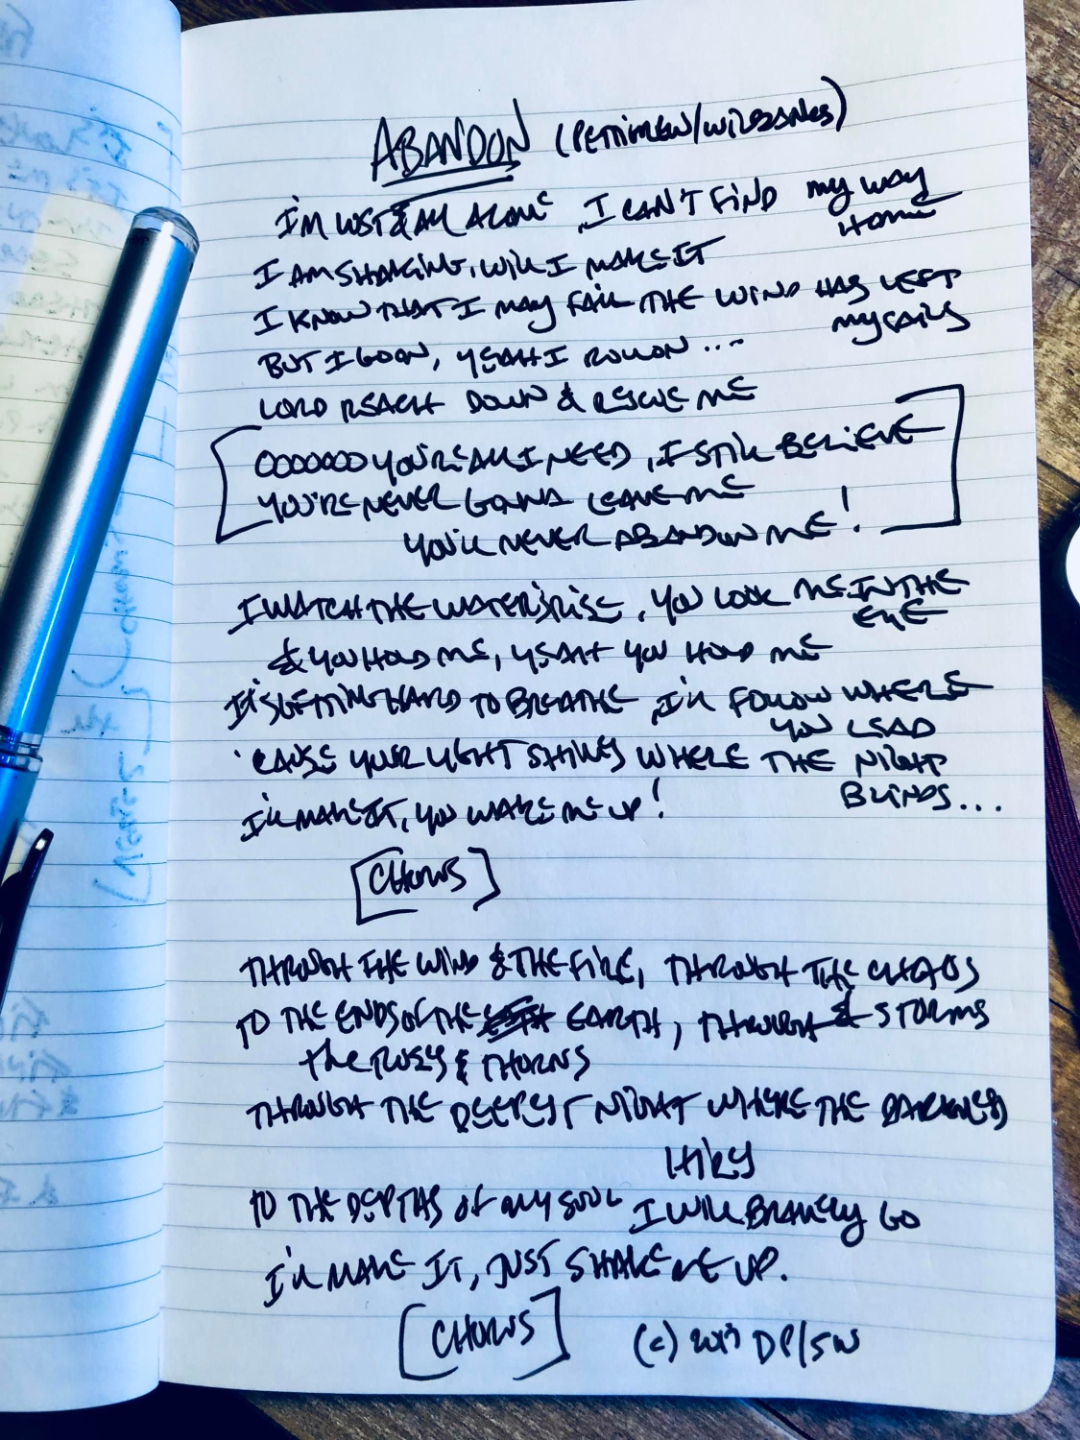 ABANDON (PETTIGREW/WILBANKS)
I'M LOST & ALL ALONE, I CAN'T FIND MY WAY
HOME
I AM SHAKING, WILL I MAKE IT
I KNOW THAT I MAY FAIL THE WIND HAS LEFT
MY SAILS
BUT I GO ON, YEAH I ROLL ON ...
LORD REACH DOWN & RESCUE ME
OOOOOOO YOU'RE ALL I NEED, I STILL BELIEVE
YOU'RE NEVER GONNA LEAVE ME
YOU'LL NEVER ABANDON ME!
I WATCH THE WATERS RISE, YOU LOOK ME IN THE
EYE
& YOU HOLD ME, YEAH YOU HOLD ME
IT'S GETTING HARD TO BREATHE, I'LL FOLLOW WHERE
YOU LEAD
'CAUSE YOUR LIGHT SHINES WHERE THE NIGHT
BLINDS...
I'LL MAKE IT, YOU WAKE ME UP!
[CHORUS]
THROUGH THE WIND & THE FIRE, THROUGH THE CHAOS
TO THE ENDS OF THE EARTH, THROUGH & STORMS
THE ROSES & THORNS
THROUGH THE DEEPEST NIGHT WHERE THE DARKNESS
HIDES
TO THE DEPTHS OF MY SOUL I WILL BRAVELY GO
I'LL MAKE IT, JUST SHAKE ME UP.
[CHORUS] (c) 2013 DP/SW